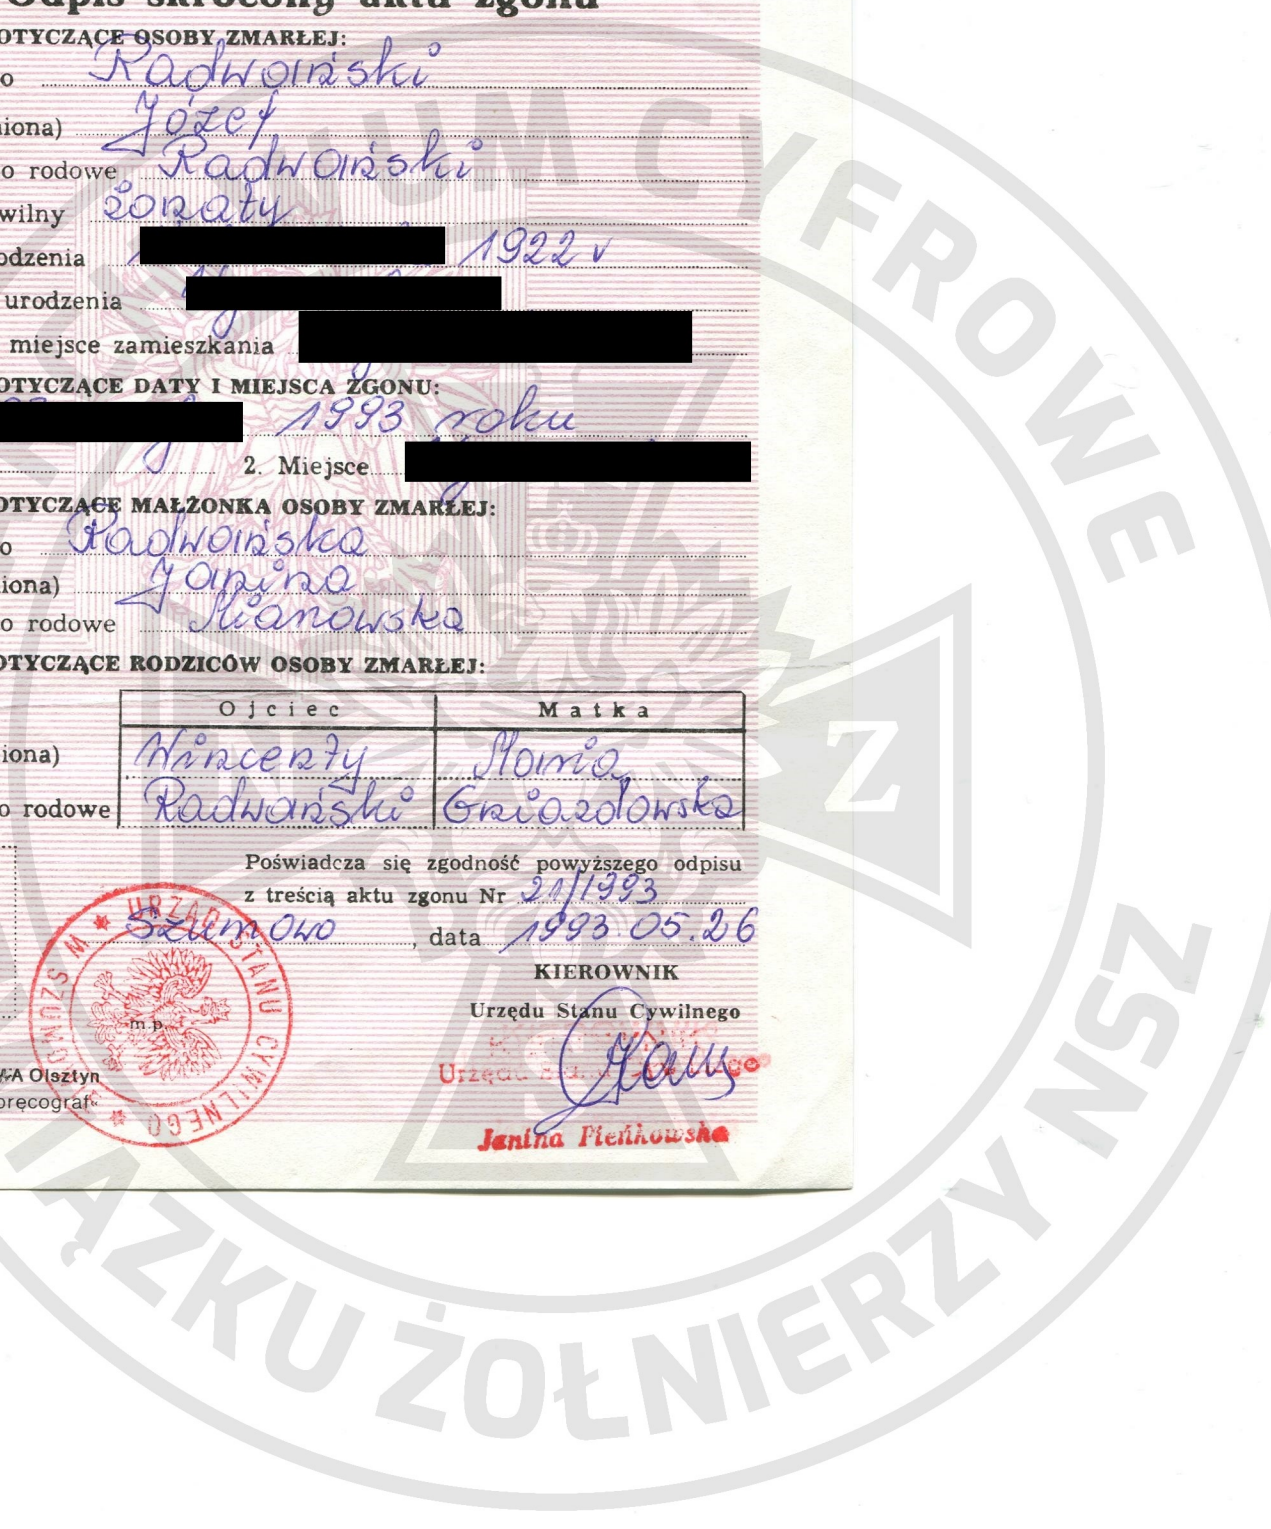 Odpis skrócony aktu zgonu
OTYCZĄCE OSOBY ZMARŁEJ:
o Radwański
niona) Józef
o rodowe Radwański
wilny żonaty
odzenia 1922 r
urodzenia
miejsce zamieszkania
OTYCZĄCE DATY I MIEJSCA ZGONU:
1993 roku
2. Miejsce
OTYCZĄCE MAŁŻONKA OSOBY ZMARŁEJ:
o Radwańska
iona) Janina
o rodowe Mianowska
OTYCZĄCE RODZICÓW OSOBY ZMARŁEJ:
Ojciec Matka
iona) Wincenty Maria
o rodowe Radwański Gwiazdowska
Poświadcza się zgodność powyższego odpisu
z treścią aktu zgonu Nr 21/1993
Szumowo, data 1993.05.26
KIEROWNIK
Urzędu Stanu Cywilnego
m.p.
URZĄD STANU CYWILNEGO * W SZUMOWIE *
A Olsztyn
Janina Pieńkowska
UM CYFROWE
ĄZKU ŻOŁNIERZY NSZ
Z